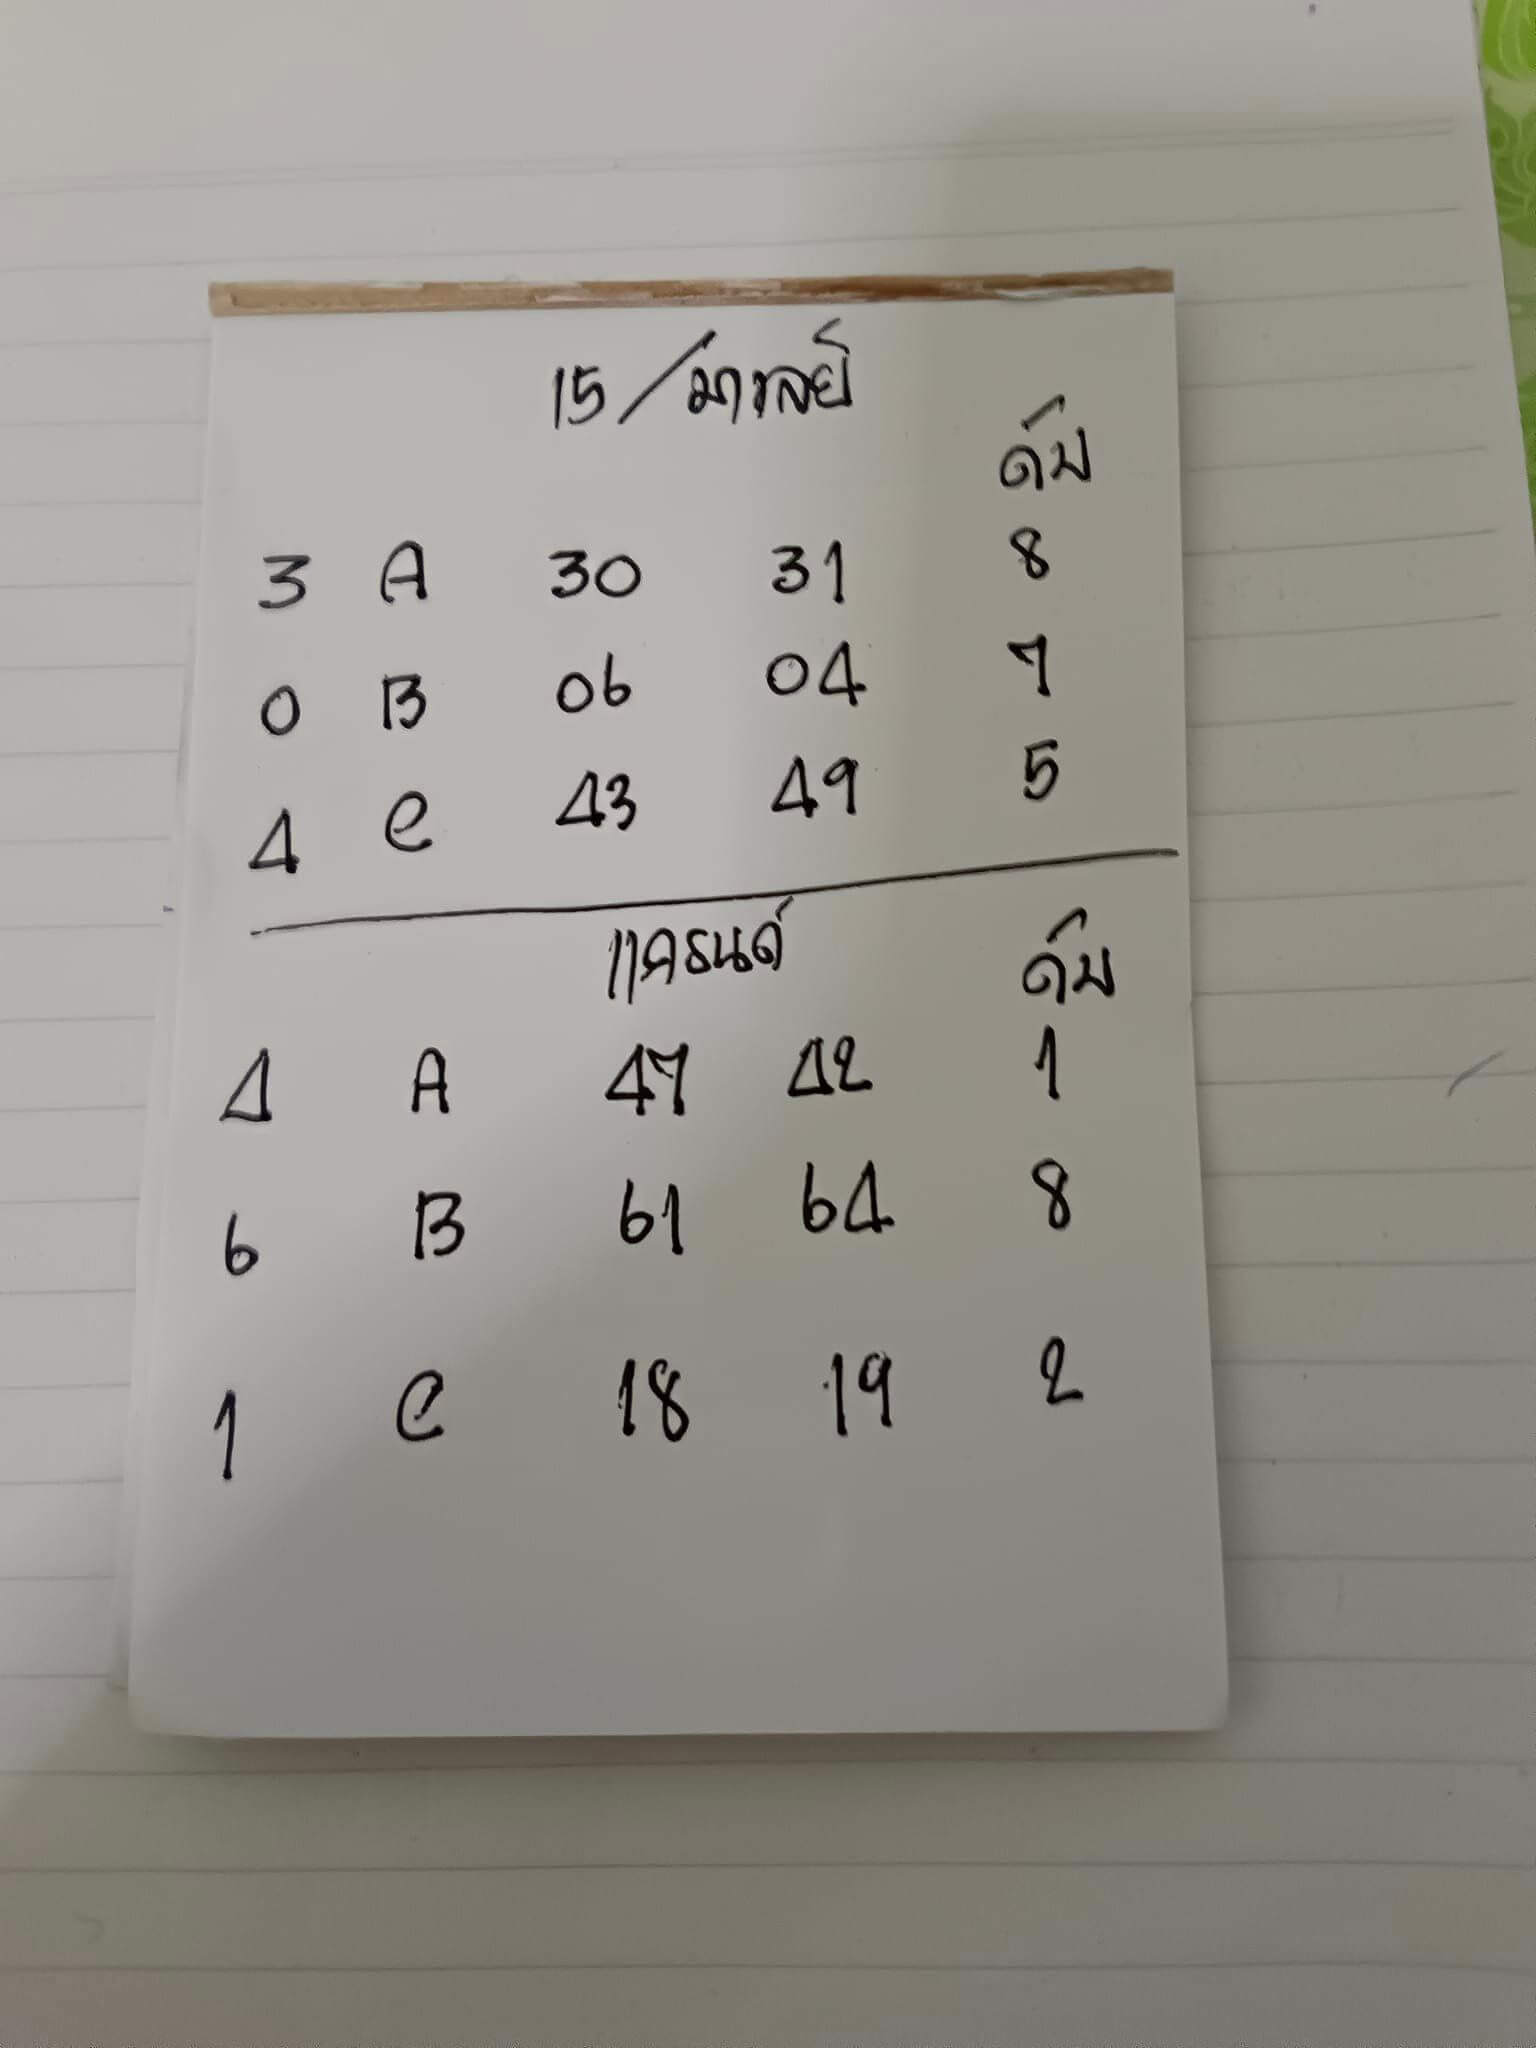 15/มาเลย์
ดับ
3 A 30 31 8
0 B 06 04 7
4 C 43 49 5
แกรนด์
ดับ
4 A 47 42 1
6 B 61 64 8
1 C 18 19 2